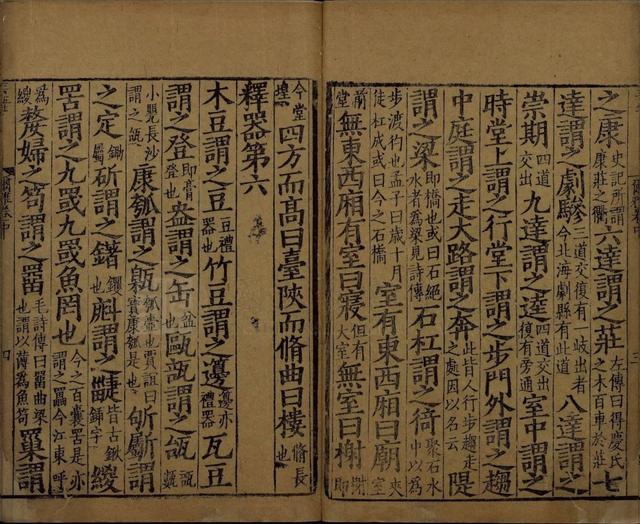 之康史記所謂康莊之衢六達謂之莊左傳曰得慶氏之木百車於莊七
達謂之劇驂三道交復有一歧出者今北海劇縣有此道八達謂之
崇期四道交出九達謂之逵四道交出復有旁通室中謂之
時堂上謂之行堂下謂之步門外謂之趨
中庭謂之走大路謂之奔此皆人行步趨走之處因以名云隄
謂之梁即橋也或曰石絕水者為梁見詩傳石杠謂之徛聚石水中以為
步渡彴也孟子曰歲十月徒杠成或曰今之石橋室有東西廂曰廟夾室
前堂無東西廂有室曰寢但有大室無室曰榭即
今堂堭四方而高曰臺陝而脩曲曰樓脩長也
釋器第六
木豆謂之豆豆禮器也竹豆謂之籩籩亦禮器瓦豆
謂之登即膏登也盎謂之缶盆也甌瓿謂之瓵瓿甊
小甖長沙謂之瓵康瓠謂之甈瓠壺也賈誼曰寶康瓠是也斪斸謂
之定鋤屬斫謂之鐯钁也㪺謂之疀皆古鍬鍤字緵
罟謂之九罭九罭魚罔也今之百囊罟是亦謂之䍡今江東呼
為緵嫠婦之笱謂之罶毛詩傳曰罶曲梁也謂以薄為魚笱罺謂